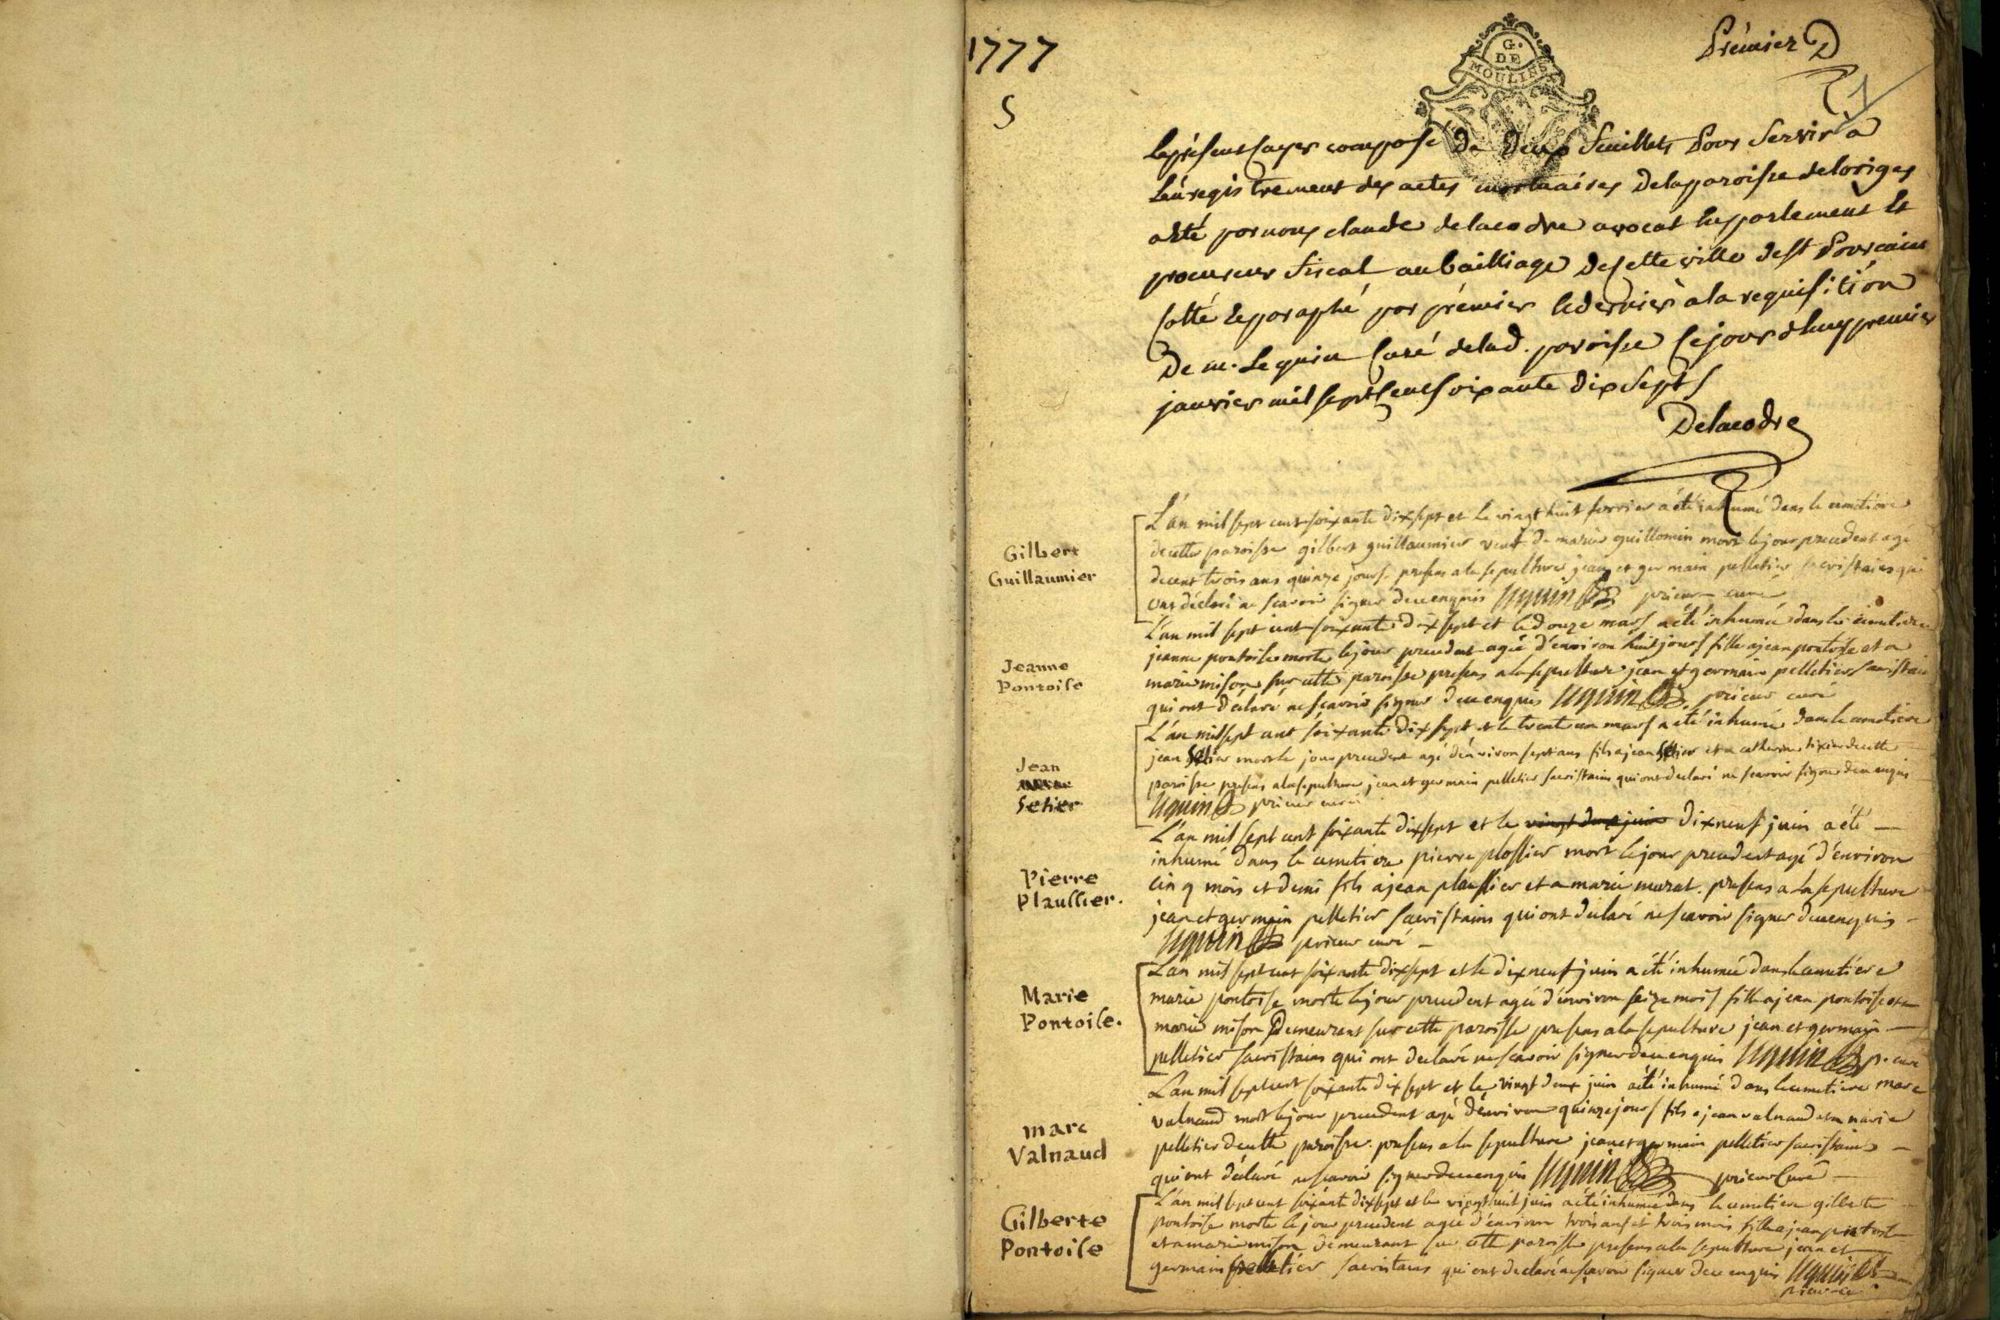 1777
S
G.
DE
MOULINS
Prémier D
1
Le présent cayer composé de deux feuillets pour servir a
l'enregistrement des actes mortuaires de la paroisse de loriges
a été par nous claude delacodre avocat en parlement et
procureur fiscal au bailliage de cette ville de st Pourcain
cotté et paraphé par prémier et dernier a la requisition
De m. Lequin curé de lad. paroisse ce jourd'huy premier
janvier mil sept cent soixante dix sept
Delacodre
Gilbert
Guillaumier
L'an mil sept cent soixante dix sept et le vingt huit fevrier a été inhumé dans le cimetiere
de cette paroisse gilbert guillaumier veuf de marie guillomin mort le jour precedent age
de cent trois ans quinze jours. presens a la sepulture jean et germain pelletier sacristains qui
ont déclaré ne scavoir signer de ce enquis Lequin prieur curé
Jeanne
Pontoise
L'an mil sept cent soixante dix sept et le douze mars a été inhumée dans le cimetiere
jeanne pontoise morte le jour precedent agée d'environ huit jours fille a jean pontoise et a
marie mison sur cette paroisse presens a la sepulture jean et germain pelletier sacristains
qui ont déclaré ne scavoir signer de ce enquis Lequin prieur curé
Jean
Setier
L'an mil sept cent soixante dix sept et le trente un mars a été inhumé dans le cimetiere
jean Setier mort le jour precedent agé d'environ sept ans fils a jean Setier et a catherine tixier de cette
paroisse presens a la sepulture jean et germain pelletier sacristains qui ont declaré ne scavoir signer de ce enquis
Lequin prieur curé
Pierre
Plaussier.
L'an mil sept cent soixante dix sept et le vingt deux juin dix neuf juin a été
inhumé dans le cimetiere pierre plossier mort le jour precedent agé d'environ
cinq mois et demi fils a jean plaussier et a marie murat. presens a la sepulture
jean et germain pelletier sacristains qui ont declaré ne scavoir signer de ce enquis
Lequin prieur curé
Marie
Pontoise.
L'an mil sept cent soixante dix sept et le dix neuf juin a été inhumée dans le cimetiere
marie pontoise morte le jour precedent agée d'environ seize mois fille a jean pontoise et a
marie mison Demeurant sur cette paroisse presens a la sepulture jean et germain
pelletier sacristains qui ont declaré ne scavoir signer de ce enquis Lequin p. curé
marc
Valnaud
L'an mil sept cent soixante dix sept et le vingt deux juin a été inhumé dans le cimetiere marc
valnaud mort le jour precedent agé d'environ quinze jours fils a jean valnaud et a marie
pelletier de cette paroisse. presens a la sepulture jean et germain pelletier sacristains
qui ont déclaré ne scavoir signer de ce enquis Lequin prieur Curé
Gilberte
Pontoise
L'an mil sept cent soixante dix sept et le vingt huit juin a été inhumée dans le cimetiere gilberte
pontoise morte le jour precedent agée d'environ trois ans et trois mois fille a jean pontoise
et a marie mison demeurant sur cette paroisse presens a la sepulture jean et
germain pelletier sacristains qui ont declaré ne scavoir signer de ce enquis Lequin